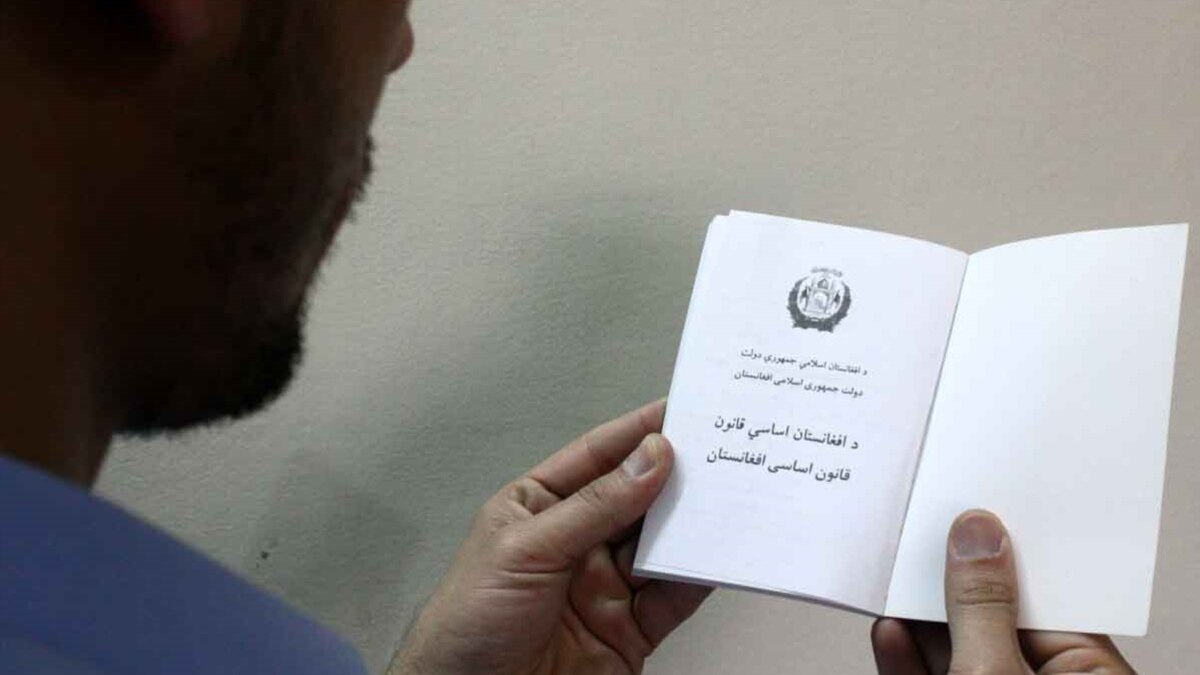 د افغانستان اسلامي جمهوري دولت
دولت جمهوری اسلامی افغانستان
د افغانستان اساسي قانون
قانون اساسی افغانستان